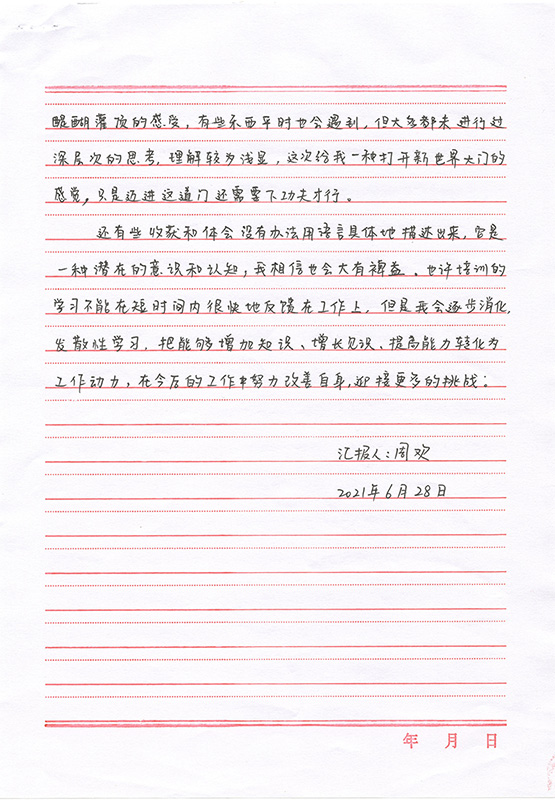 醍醐灌顶的感受，有些东西平时也会遇到，但大多都未进行过
深层次的思考，理解较为浅显，这次给我一种打开新世界大门的
感觉，只是迈进这道门还需要下功夫才行。
还有些收获和体会没有办法用语言具体地描述出来，它是
一种潜在的意识和认知，我相信也会大有裨益。也许培训的
学习不能在短时间内很快地反馈在工作上，但是我会逐步消化，
发散性学习，把能够增加知识、增长见识、提高能力转化为
工作动力，在今后的工作中努力改善自身，迎接更多的挑战；
汇报人：周欢
2021年6月28日
年 月 日